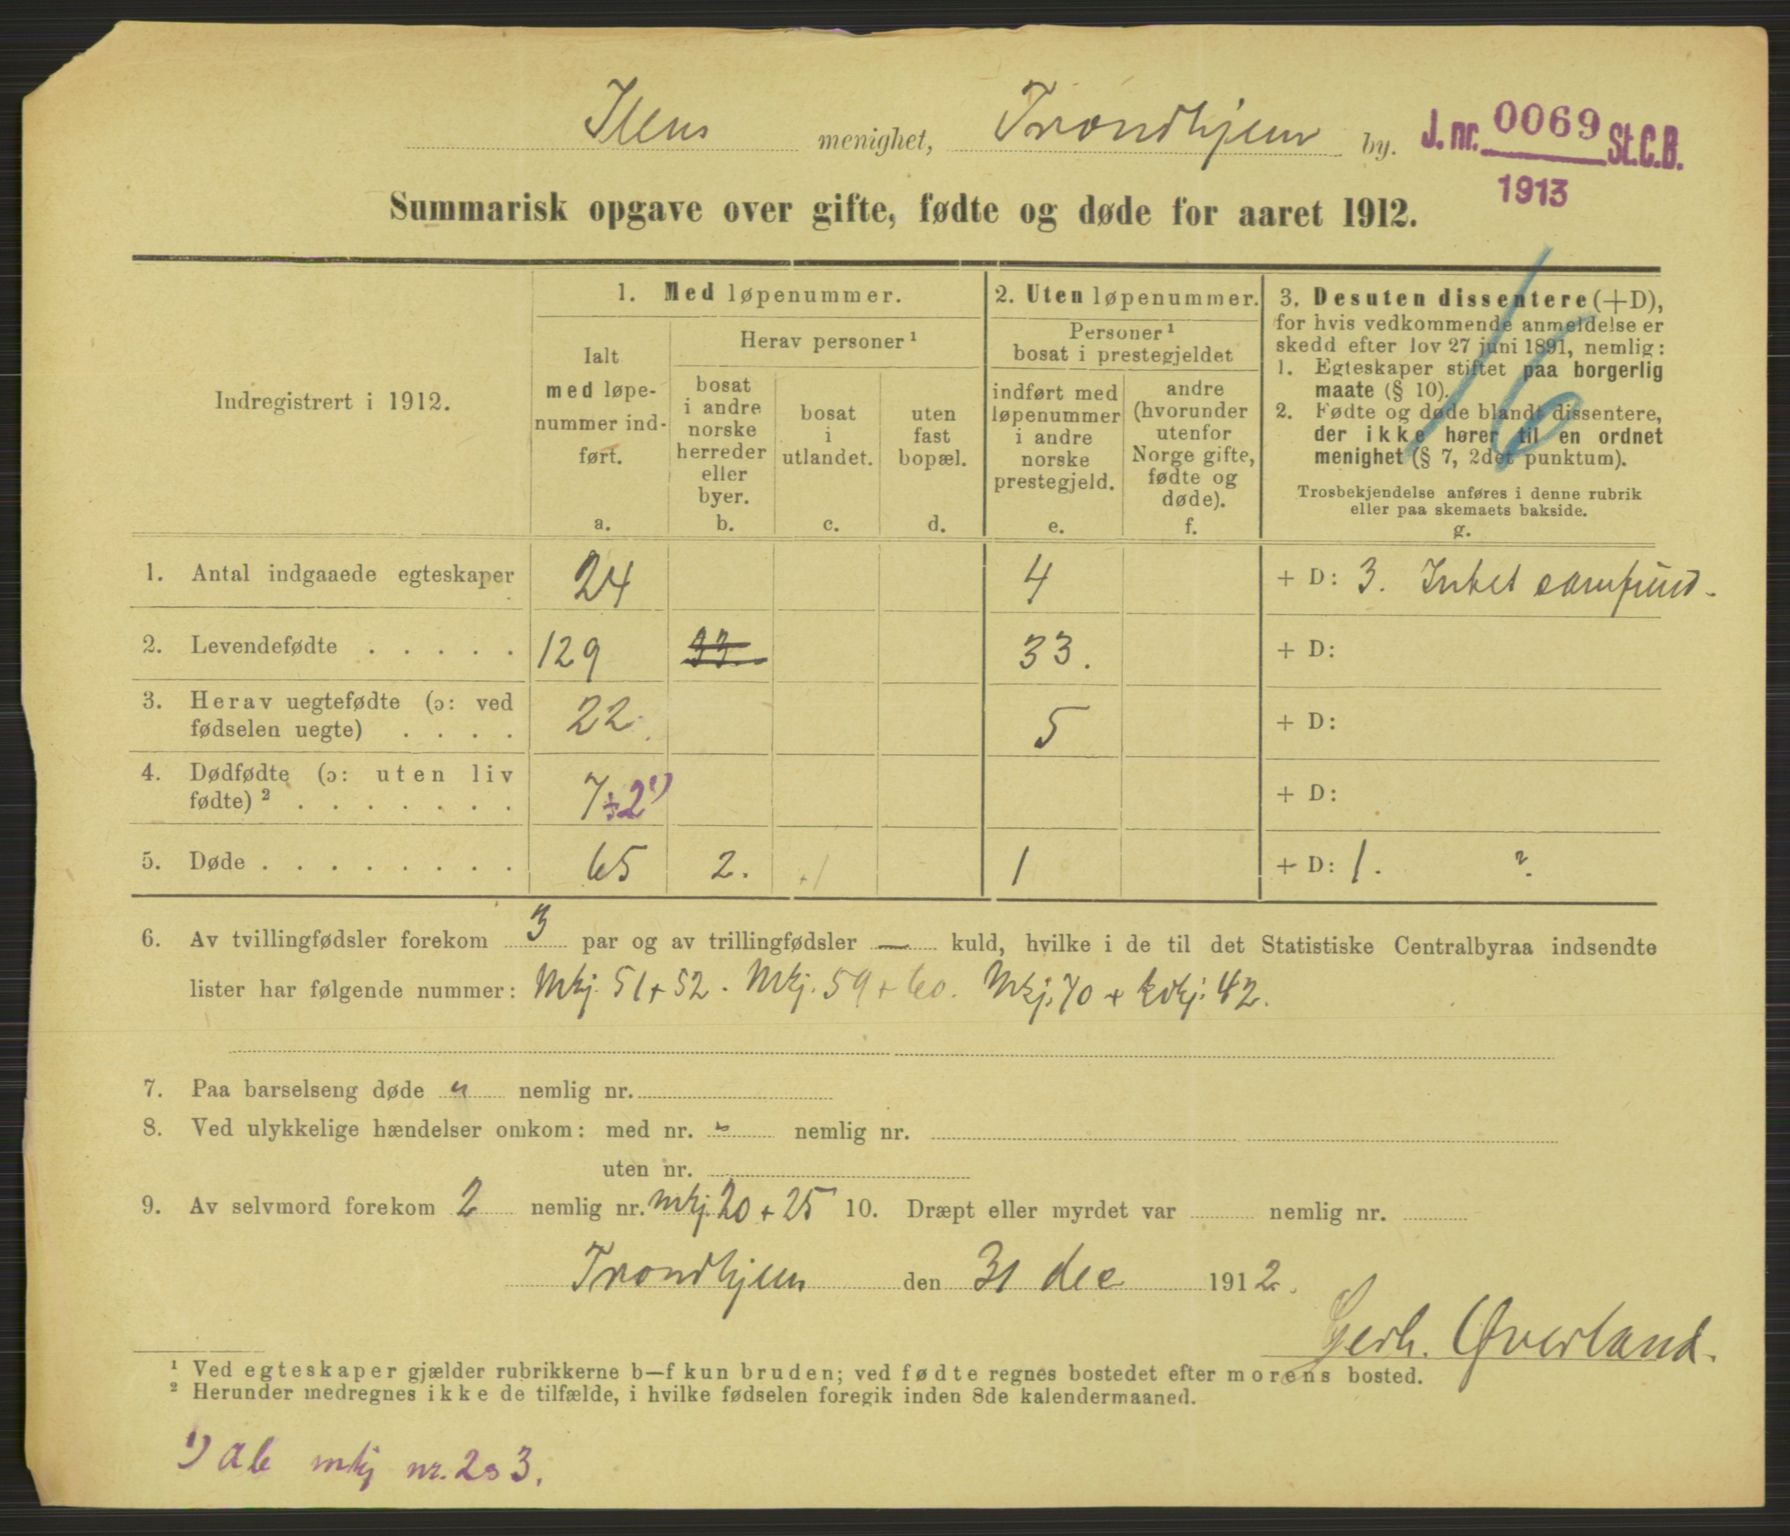 Ilens menighet, Trondhjem by. J. nr. 0069 St.C.B.
1913
Summarisk opgave over gifte, fødte og døde for aaret 1912.
16
Indregistrert i 1912.
1. Med løpenummer.
Ialt
med løpe-
nummer ind-
ført.
a.
Herav personer ¹
bosat
i andre
norske
herreder
eller
byer.
b.
bosat
i
utlandet.
c.
uten
fast
bopæl.
d.
2. Uten løpenummer.
Personer ¹
bosat i prestegjeldet
indført med
løpenummer
i andre
norske
prestegjeld.
e.
andre
(hvorunder
utenfor
Norge gifte,
fødte og
døde).
f.
3. Desuten dissentere (+D),
for hvis vedkommende anmeldelse er
skedd efter lov 27 juni 1891, nemlig:
1. Egteskaper stiftet paa borgerlig
maate (§ 10).
2. Fødte og døde blandt dissentere,
der ikke hører til en ordnet
menighet (§ 7, 2det punktum).
Trosbekjendelse anføres i denne rubrik
eller paa skemaets bakside.
g.
1. Antal indgaaede egteskaper 24 4 + D: 3. Intet samfund.
2. Levendefødte . . . . . 129 33. 33. + D:
3. Herav uegtefødte (ɔ: ved
fødselen uegte) . . . . 22. 5 + D:
4. Dødfødte (ɔ: uten liv
fødte) ² . . . . . . . 7÷2¹) + D:
5. Døde . . . . . . . . 65 2. +1 1 + D: 1. ?
6. Av tvillingfødsler forekom 3 par og av trillingfødsler — kuld, hvilke i de til det Statistiske Centralbyraa indsendte
lister har følgende nummer: Mkj. 51+52. Mkj. 59+60. Mkj. 70 + Kvkj. 42.
7. Paa barselseng døde " nemlig nr.
8. Ved ulykkelige hændelser omkom: med nr. " nemlig nr.
uten nr.
9. Av selvmord forekom 2 nemlig nr. Mkj. 20 + 25 10. Dræpt eller myrdet var nemlig nr.
Trondhjem den 31 dec 1912.
Gerh. Øverland.
¹ Ved egteskaper gjælder rubrikkerne b—f kun bruden; ved fødte regnes bostedet efter morens bosted.
² Herunder medregnes ikke de tilfælde, i hvilke fødselen foregik inden 8de kalendermaaned.
¹) ab mkj nr. 2 o 3.